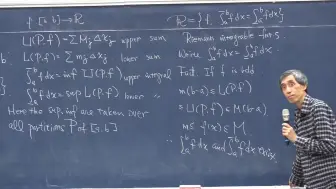 f: [a,b] → ℝ
U(P,f) = ΣM_j Δx_j upper sum
L(P,f) = Σm_j Δx_j lower sum
∫̄_a^b f dx = inf U(P,f) upper integral
∫̲_a^b f dx = sup L(P,f) lower
Here the sup, inf are taken over
all partitions P of [a,b]
R = {f,
Riemann integrable fns
Write
Fact. If f is bdd
m(b-a) ≤ L(P,f)
≤ U(P,f) ≤ M(b-a)
m ≤ f(x) ≤ M
∴ ∫̲_a^b f dx and ∫̄_a^b f dx exist